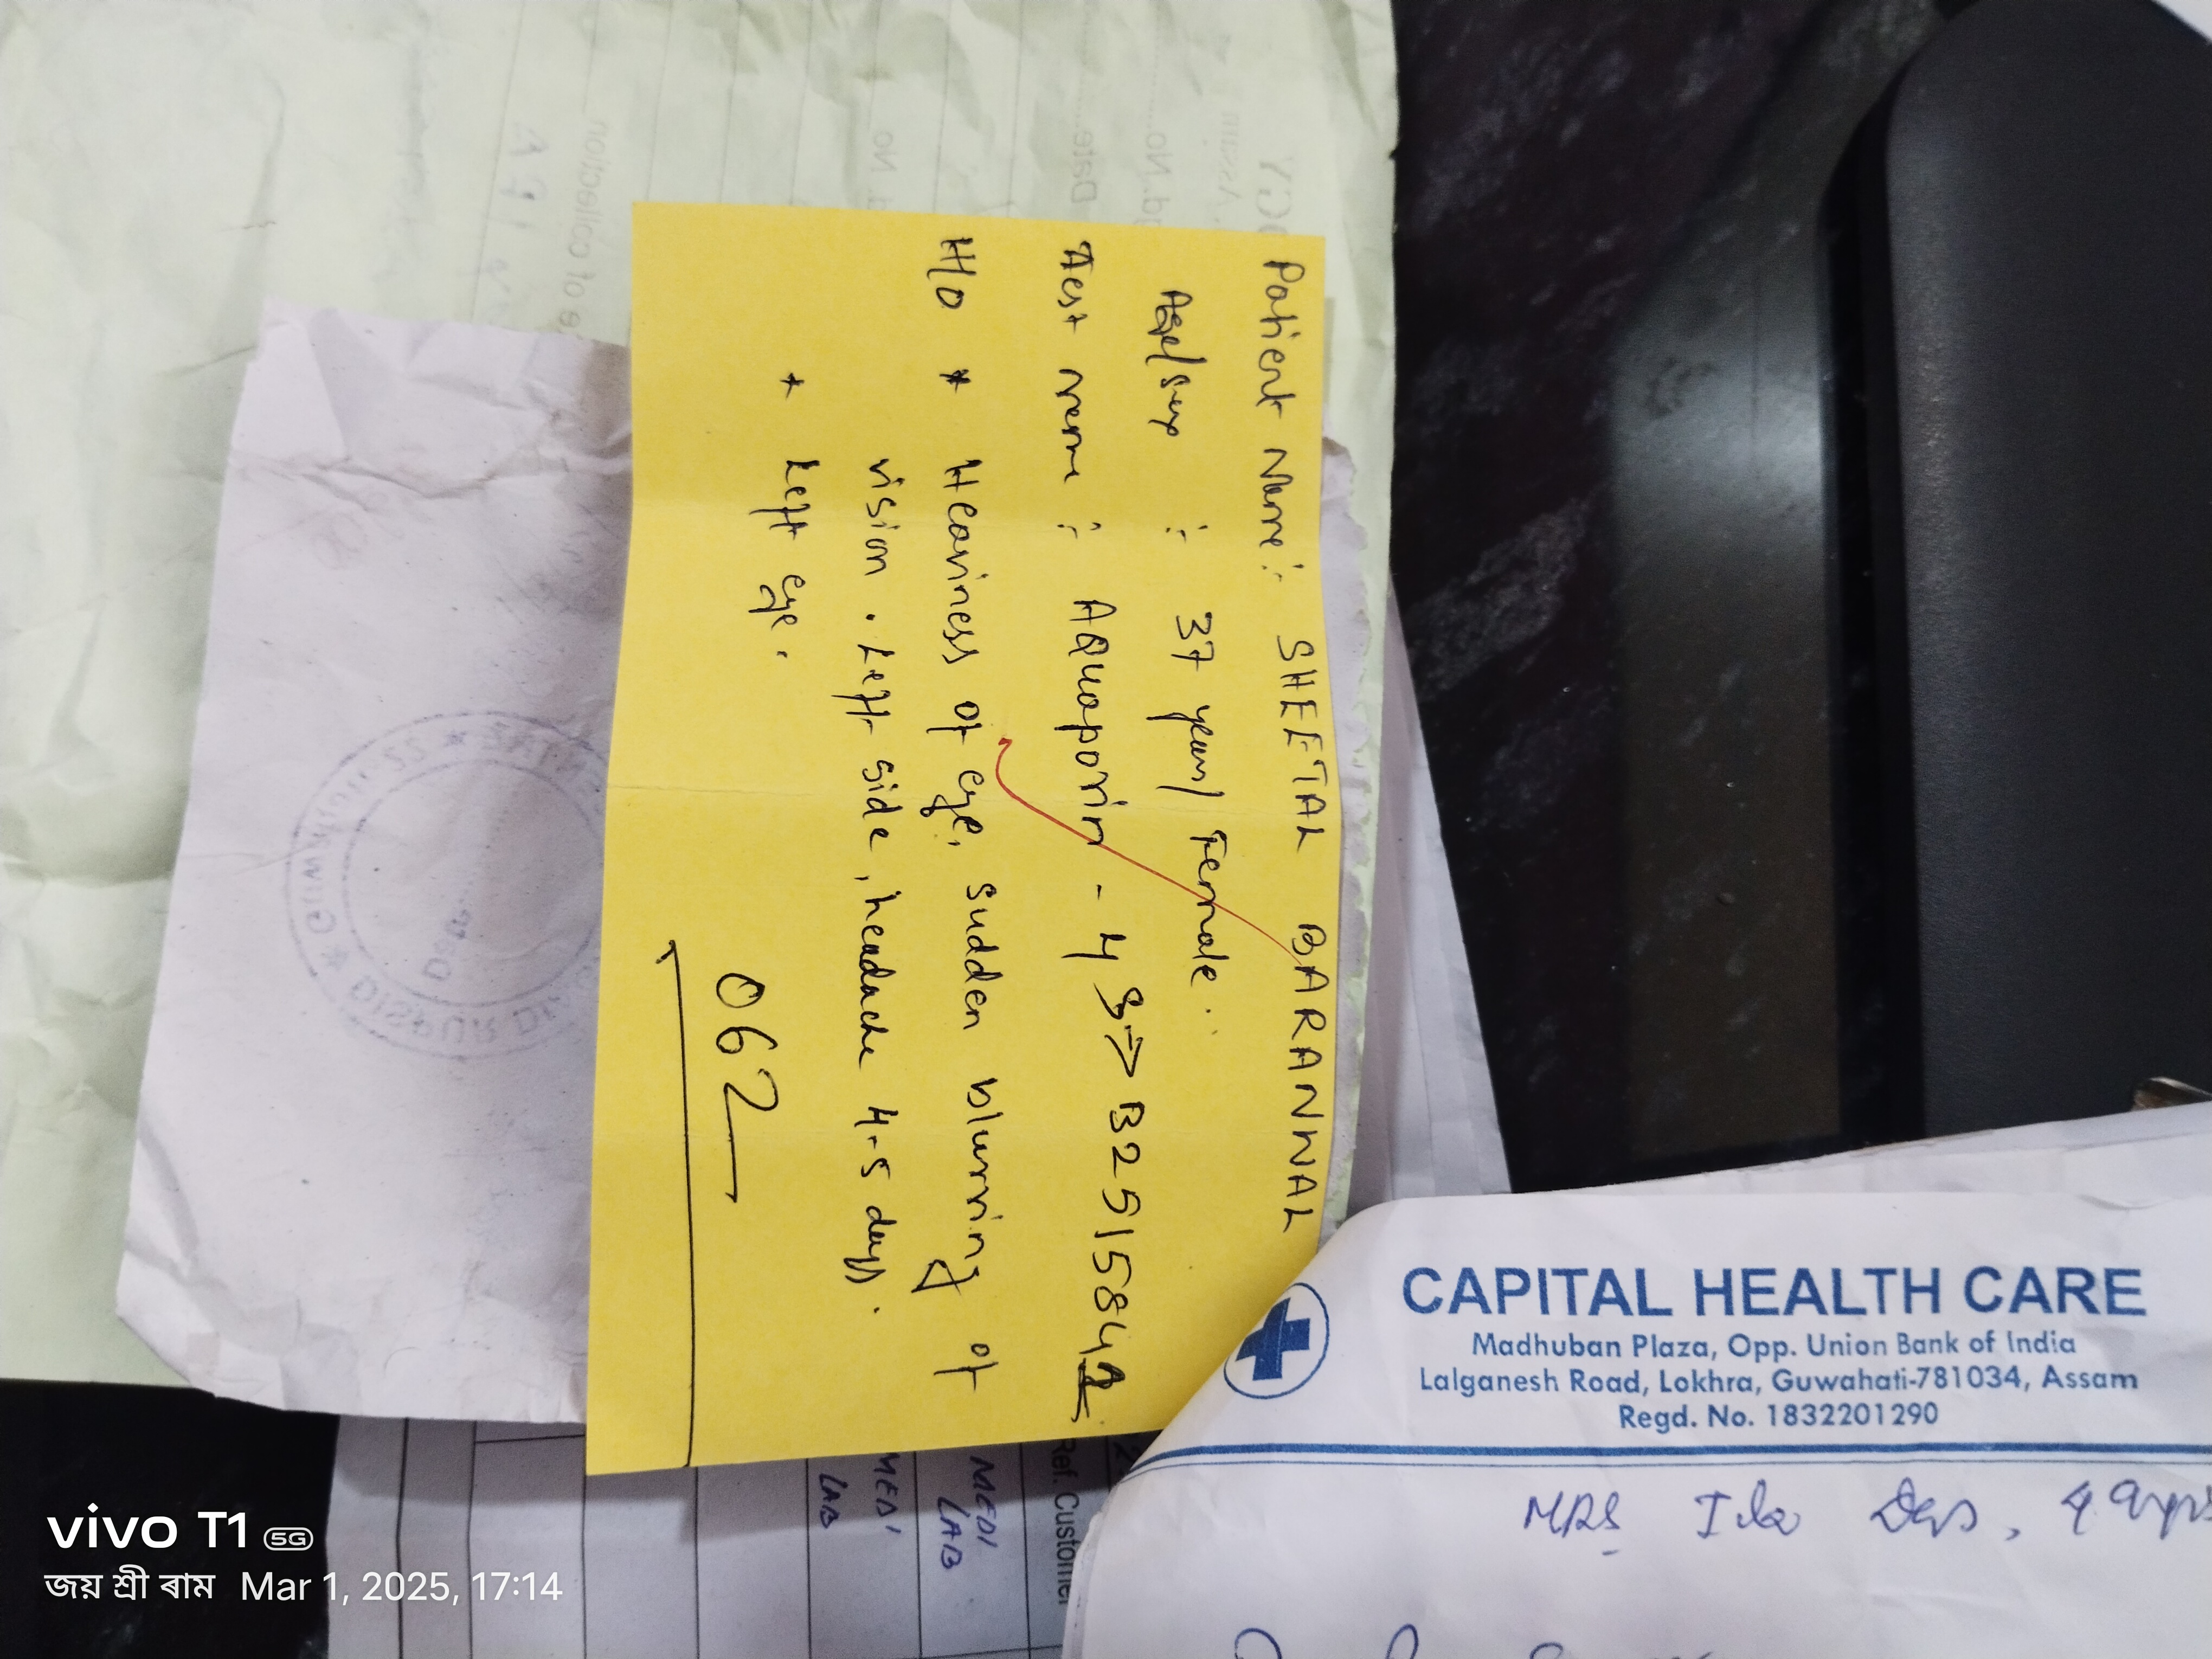 Patient Name :- SHEETAL BARANWAL
Age/Sex :- 37 years/ Female.
Test name :- AQuaporin - 4 S:-> B2515842
H/O * Heaviness of eye, sudden blurring of
vision. Left side, headache 4-5 days.
* Left eye.
062
CAPITAL HEALTH CARE
Madhuban Plaza, Opp. Union Bank of India
Lalganesh Road, Lokhra, Guwahati-781034, Assam
Regd. No. 1832201290
MRS Ila Das,
Ref. Customer
MEDI
LAB
MEDI
LAB
vivo T1 5G
জয় শ্ৰী ৰাম Mar 1, 2025, 17:14